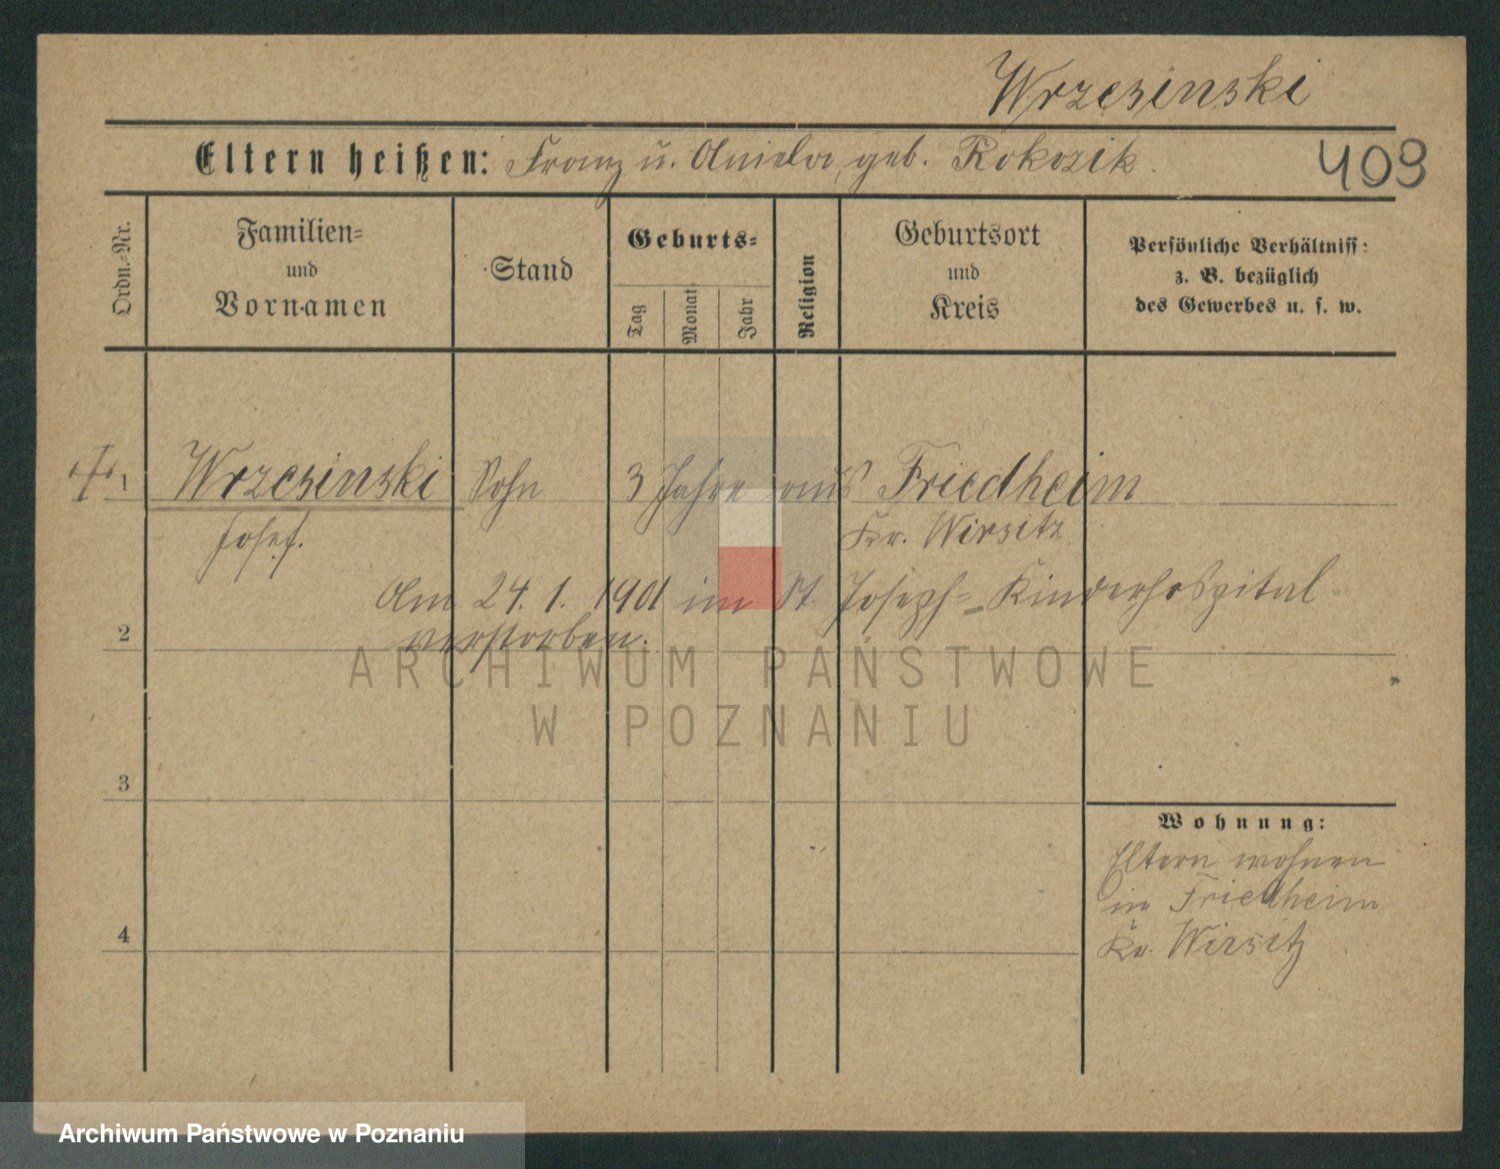 Wrzesinski
Eltern heißen: Franz u. Aniela, geb. Rokozik.
409
Ordn.-Nr.
Familien-
und
Vornamen
Stand
Geburts-
Tag
Monat
Jahr
Religion
Geburtsort
und
Kreis
Persönliche Verhältniss:
z. B. bezüglich
des Gewerbes u. s. w.
1 Wrzesinski Sohn 3 Jahre aus Friedheim
Josef. Kr. Wirsitz
Am 24. 1. 1901 im St. Joseph-Kinderhospital
verstorben.
2
ARCHIWUM PAŃSTWOWE
W POZNANIU
3
Wohnung:
Eltern wohnen
in Friedheim
Kr. Wirsitz
4
Archiwum Państwowe w Poznaniu